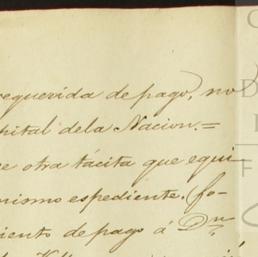 requerida de pago, no
pital dela Nacion.=
e otra tácita que equi
mismo espediente. (fo-
iento de pago á Dn